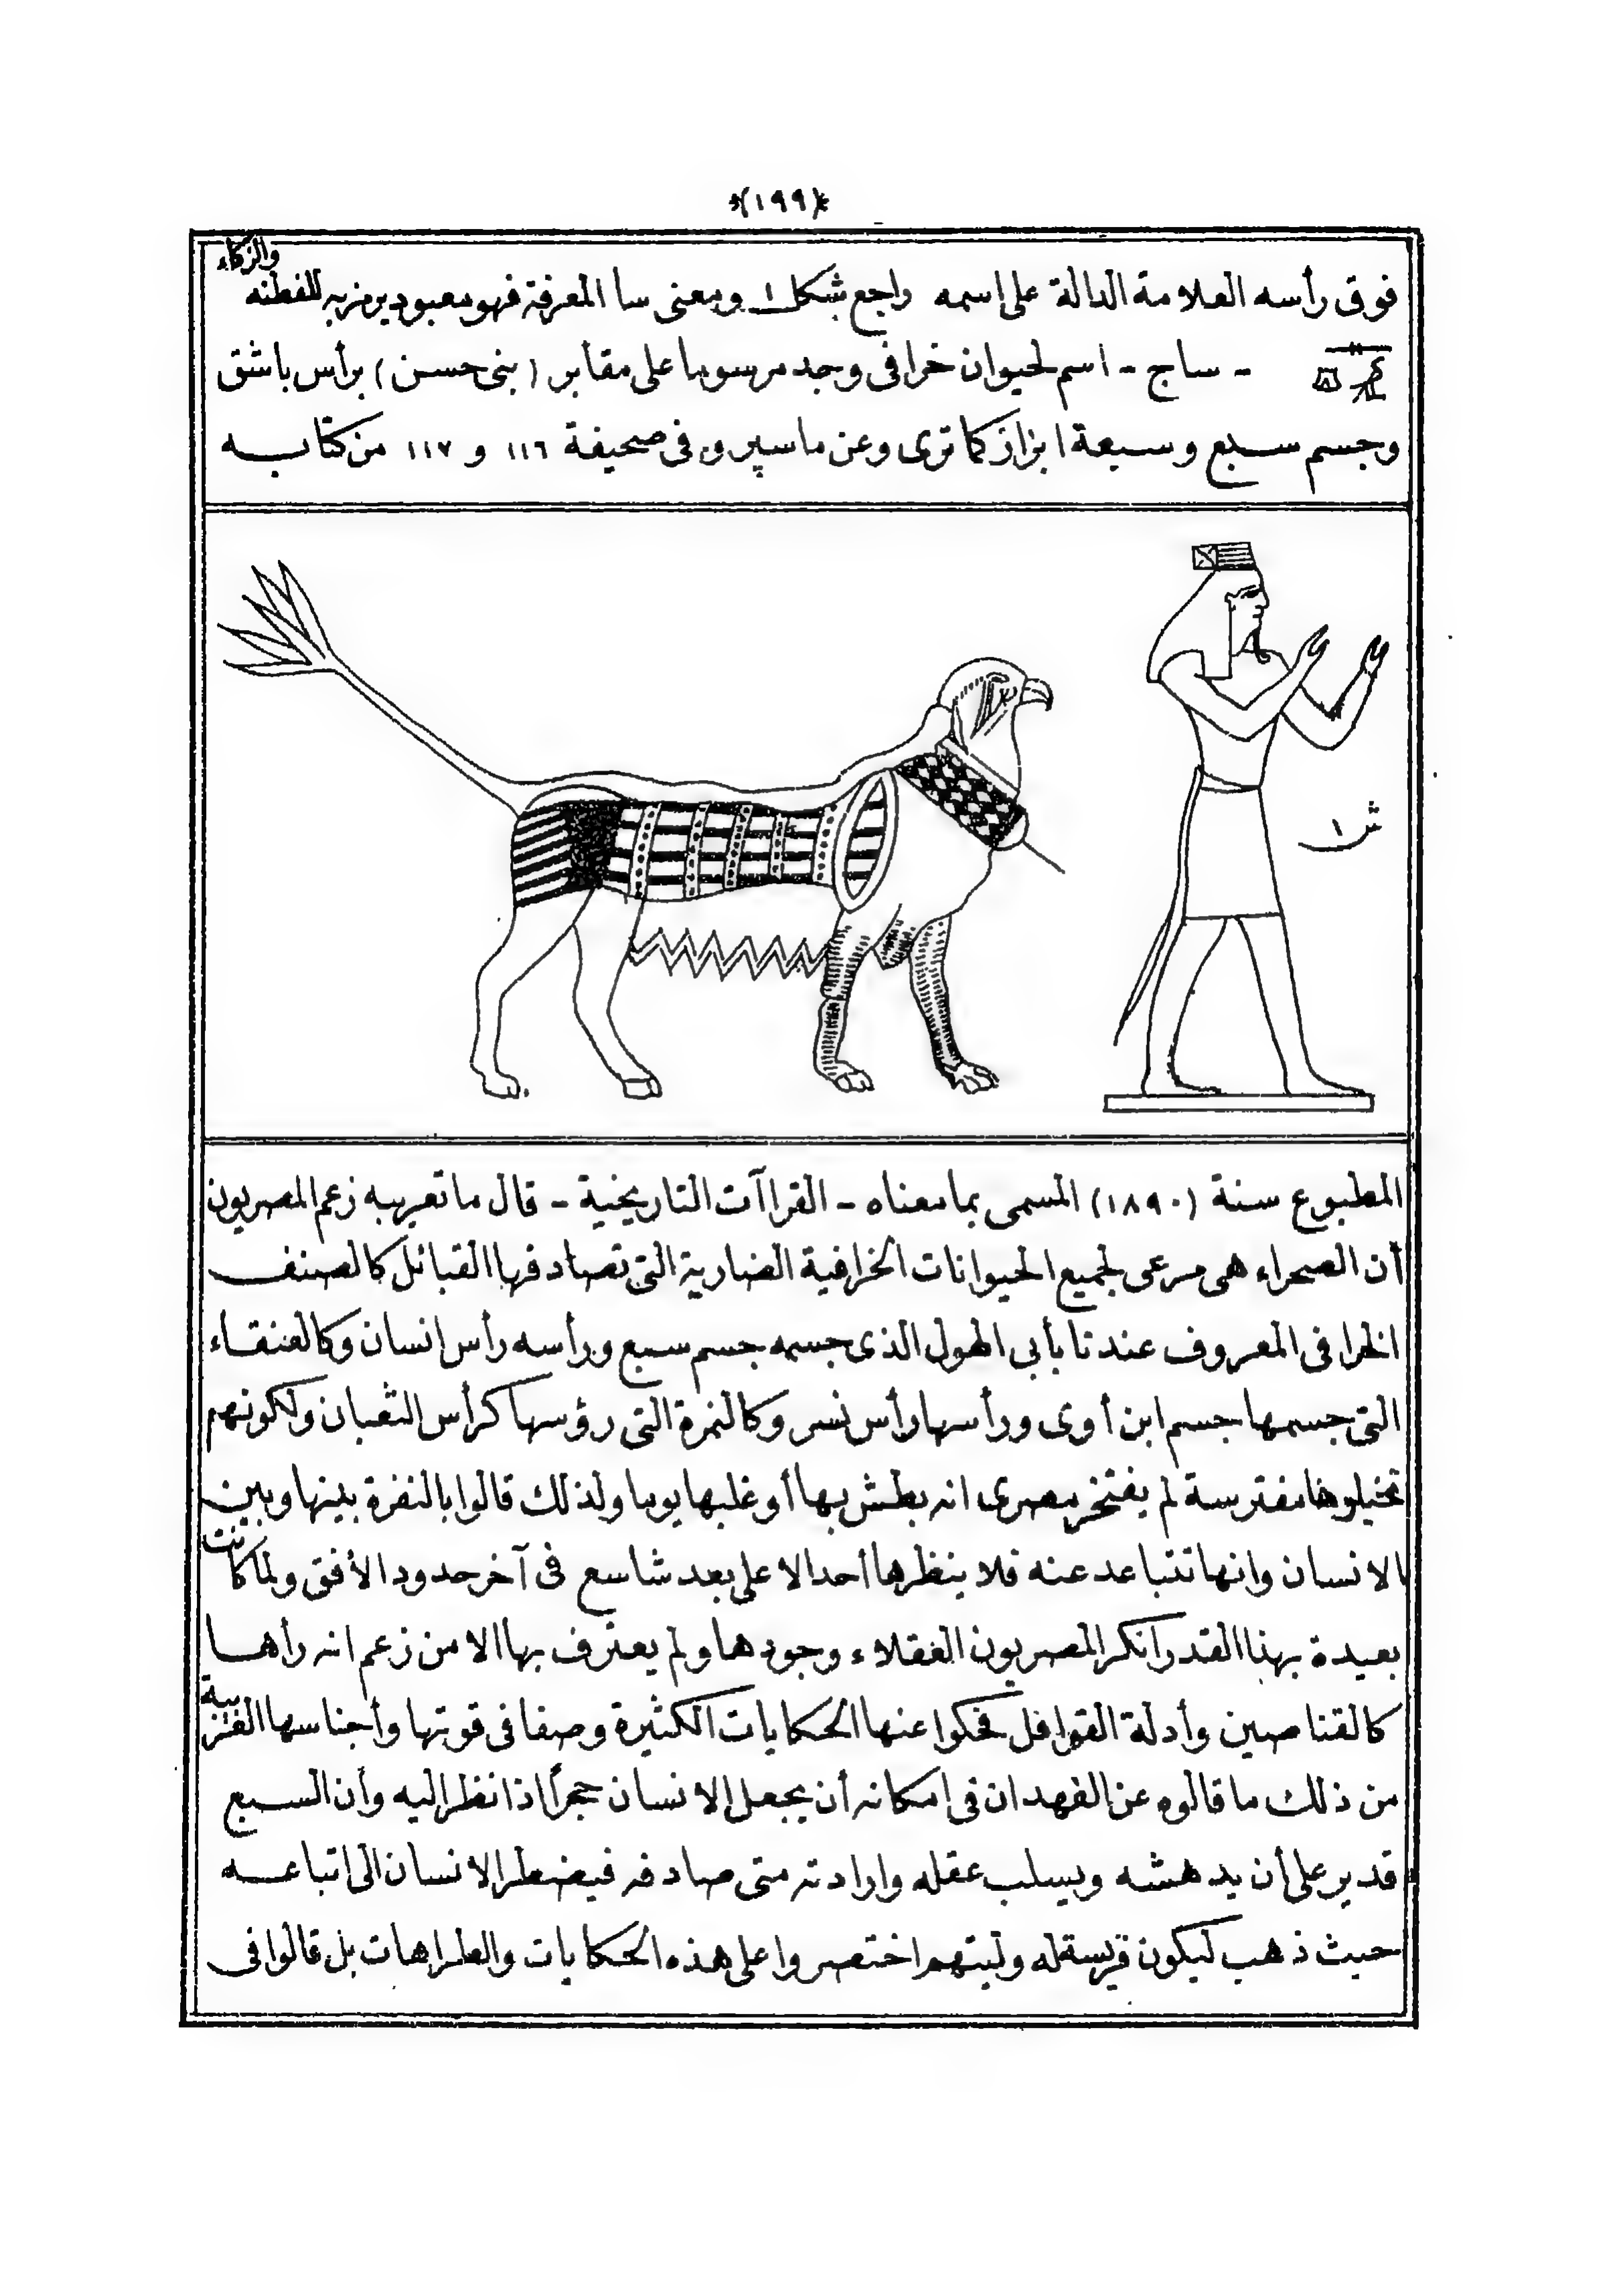 *(١٩٩)*
فوق رأسه العلامة الدالة على اسمه راجع شكل ١ ومعنى سا المعرفة فهو معبود يرمز به للفطنه والزكاء
- ساج - اسم لحيوان خرافى وجد مرسوما على مقابر (بنى حسن) برأس باشق
وجسم سبع وسبعة ابزاز كما ترى وعن ماسپرو فى صحيفة ١١٦ و ١١٧ من كتابه
ش ١
المطبوع سنة (١٨٩٠) المسمى بما معناه - القراآت التاريخية - قال ما تعريبه زعم المصريون
أن الصحراء هى مرعى لجميع الحيوانات الخرافية الضارية التى تصادفها القبائل كالصنف
الخرافى المعروف عندنا بأبى الهول الذى جسمه جسم سبع ورأسه رأس انسان وكالعنقاء
التى جسمها جسم ابن أوى ورأسها رأس نسر وكالنمرة التى رؤسها كرأس الثعبان ولكونهم
تخيلوها مفترسة لم يفتخر مصرى انه بطش بها أو غلبها يوما ولذلك قالوا بالنفرة بينها وبين
الانسان وانها تتباعد عنه فلا ينظرها أحد الا على بعد شاسع فى آخر حدود الأفق ولما كانت
بعيدة بهذا القدر انكر المصريون العقلاء وجودها ولم يعترف بها الا من زعم انه رأها
كالقناصين وأدلة القوافل فحكوا عنها الحكايات الكثيرة وصفا فى قوتها وأجناسها الغريبة
من ذلك ما قالوه عن الفهد ان فى امكانه أن يجعل الانسان حجراً اذا نظر اليه وأن السبع
قدير على أن يدهشه ويسلب عقله وارادته متى صادفه فيضطر الانسان الى اتباعه
حيث ذهب ليكون فريسة له وليتهم اختصروا على هذه الحكايات والطراهات بل قالوا فى